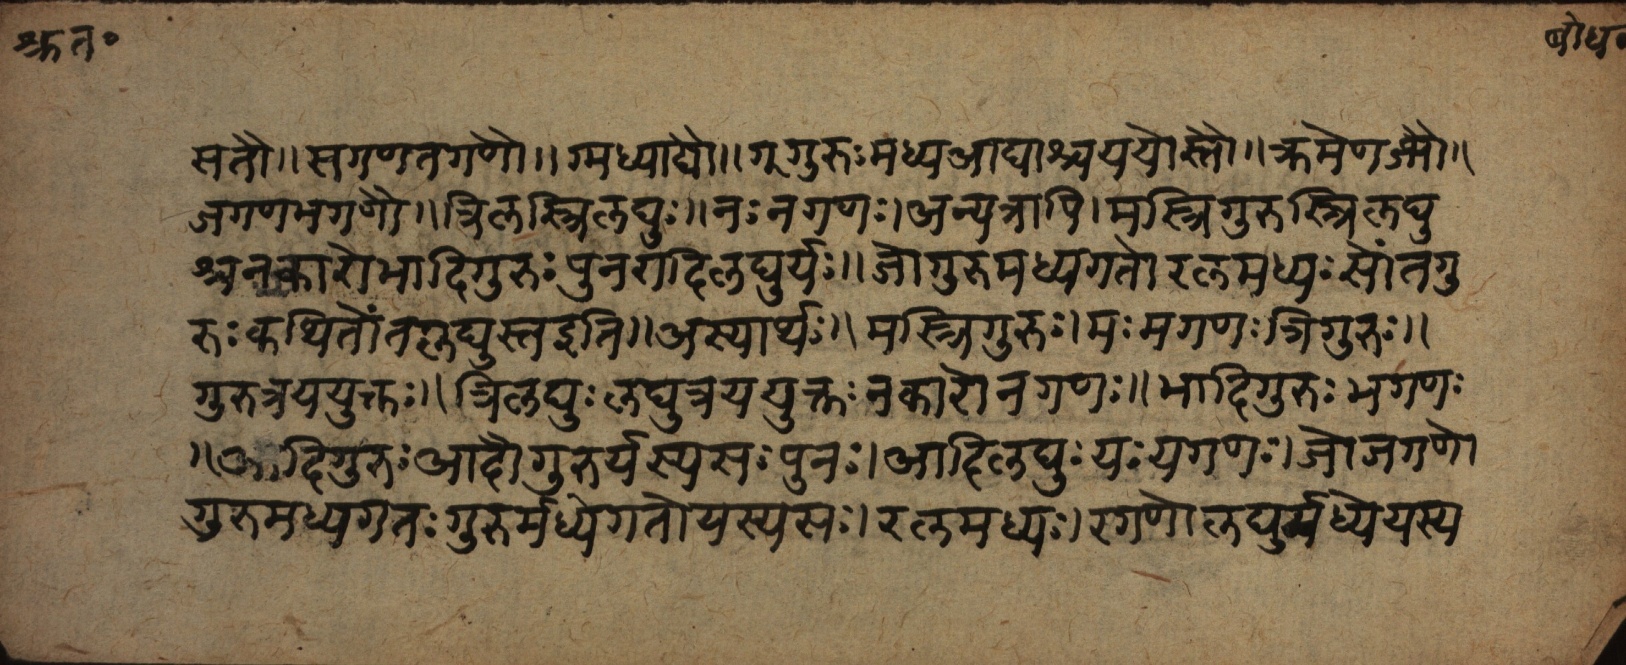 श्रुत॰
बोध॰
सतौ॥सगणतगणौ॥ग्मध्याद्यौ॥गूगुरुःमध्यआद्याश्चययोस्तौ॥क्रमेणज्भौ॥
जगणभगणौ॥त्रिलस्त्रिलघुः॥नःनगणः।अन्यत्रापि।मस्त्रिगुरुस्त्रिलघु
श्चनकारोभादिगुरुःपुनरादिलघुर्यः॥जोगुरुमध्यगतोरलमध्यःसोंतगु
रुःकथितोंतलघुस्तइति॥अस्यार्थः॥मस्त्रिगुरुः।मःमगणःत्रिगुरुः॥
गुरुत्रययुक्तः॥त्रिलघुःलघुत्रययुक्तःनकारोनगणः॥भादिगुरुःभगणः
॥आदिगुरुःआदौगुरुर्यस्यसःपुनः।आदिलघुःयःयगणः।जोजगणो
गुरुमध्यगतःगुरुर्मध्येगतोयस्यसः।रलमध्यः।रगणोलघुर्मध्येयस्य